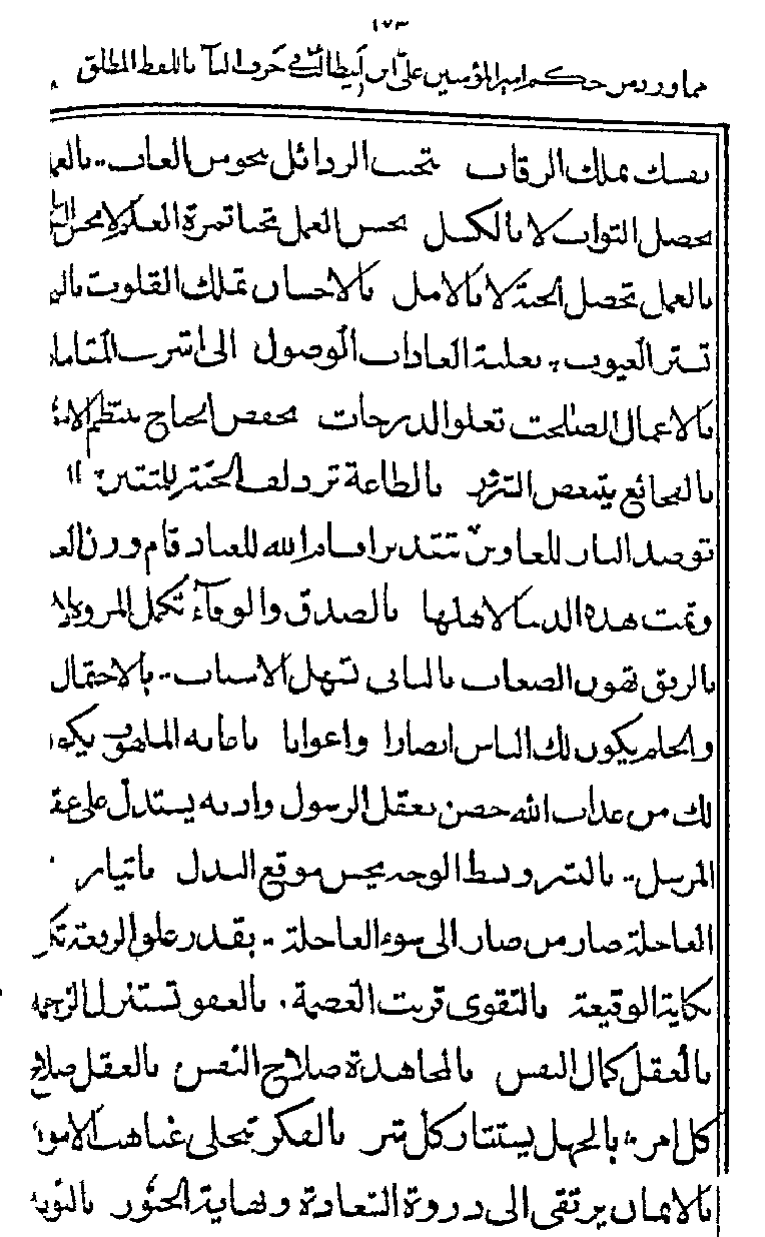 ١٧٣
مما ورد من حكم امير المؤمنين علي بن ابيطالب في حرف الباء باللفظ المطلق
نفسك تملك الرقاب بتجنب الرذائل تنجو من العاب بالعمل
يحصل الثواب لا بالكسل بحسن العمل تجنا ثمرة العلم لا بحسن
بالعمل تحصل الجنة لا بالامل بالاحسان تملك القلوب
تستر العيوب بغلبة العادات الوصول الى اشرف المقامات
بالاعمال الصالحت تعلو الدرجات بخفض الجناح ينتظم
بالفجائع يتنغص السرور بالطاعة تزدلف الجنة للمتقين
توصد النار للغاوين بتقدير اقسام الله للعباد قام وزن العالم
وتمت هذه الدنيا لاهلها بالصدق والوفاء تكمل المروة
بالرفق تهون الصعاب بالتاني تسهل الاسباب بالاحتمال
والحلم يكون لك الناس انصارا واعوانا باغاثة الملهوف يكون
لك من عذاب الله حصن بعقل الرسول وادبه يستدل على عقل
المرسل بالبشر وبسط الوجه يحسن موقع البذل بايثار
العاجلة صار من صار الى سوء العاجلة بقدر علو الرفعة
نكاية الوقيعة بالتقوى قرنت العصمة بالعفو تستنزل الرحمة
بالعقل كمال النفس بالمجاهدة صلاح النفس بالعقل صلاح
كل امر بالجهل يستثار كل شر بالفكر تنجلى غياهب الامور
بالايمان يرتقى الى ذروة السعادة ونهاية الحبور بالتوبة